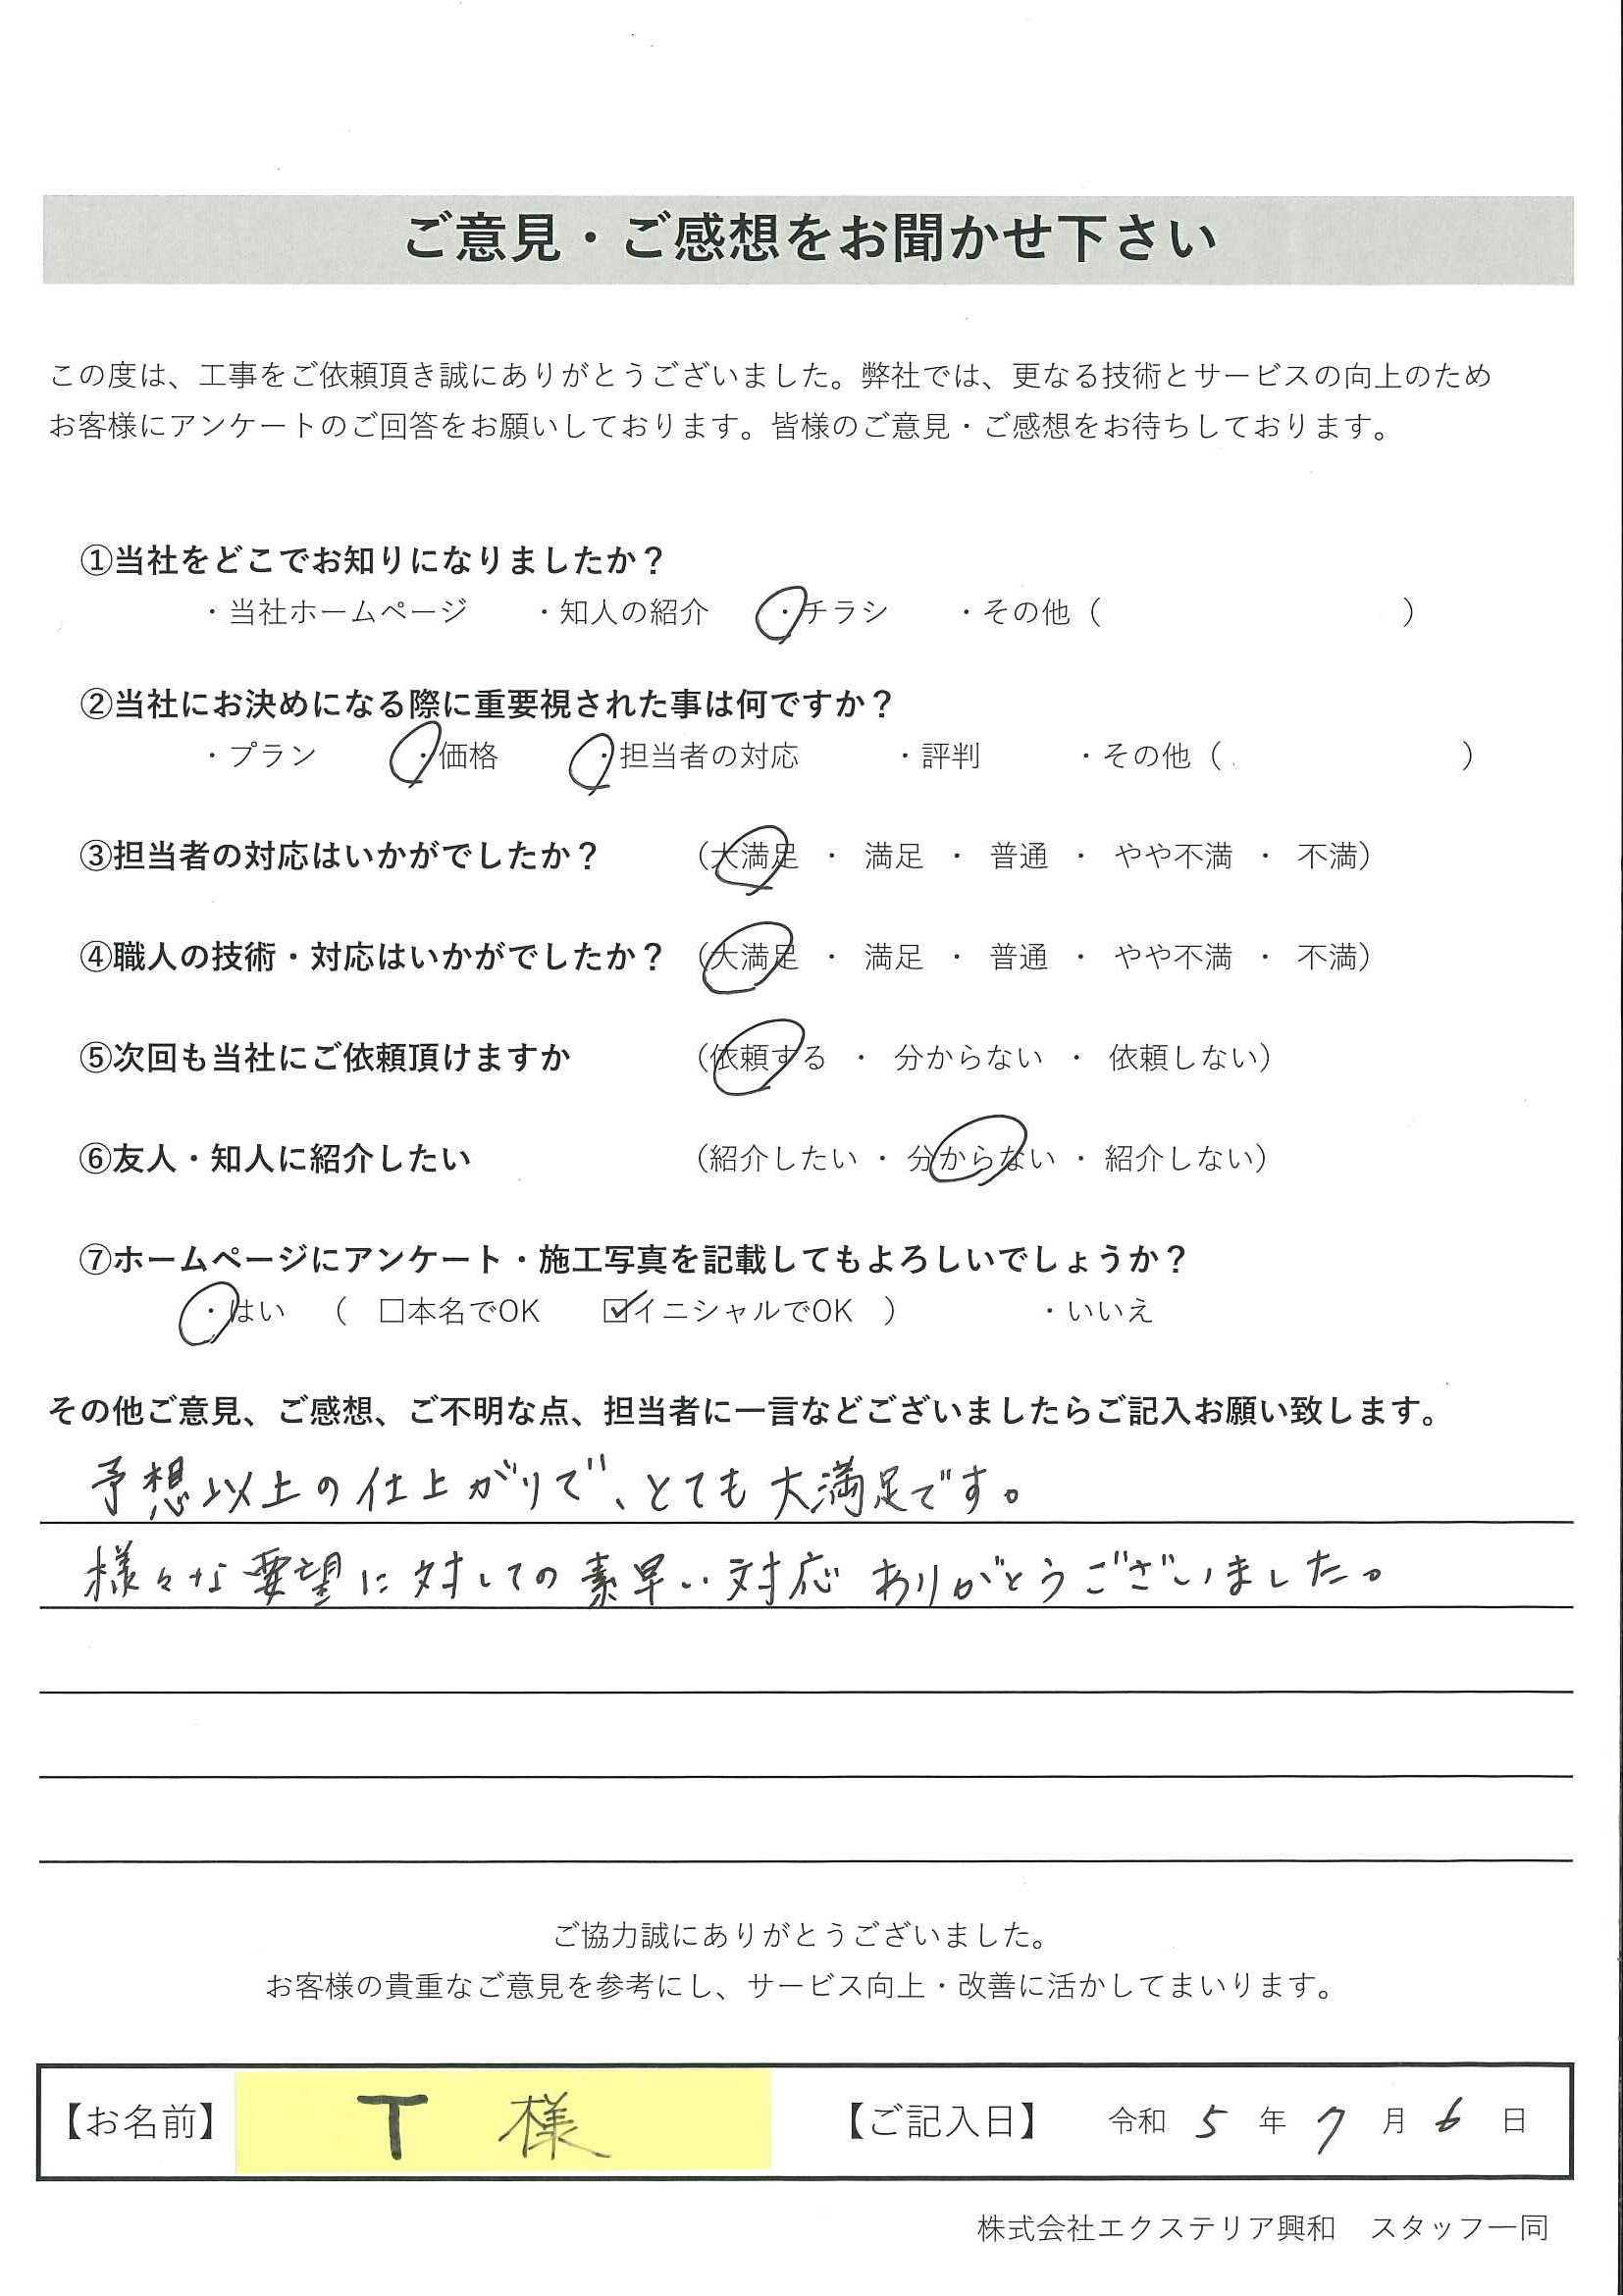 ご意見・ご感想をお聞かせ下さい
この度は、工事をご依頼頂き誠にありがとうございました。弊社では、更なる技術とサービスの向上のため
お客様にアンケートのご回答をお願いしております。皆様のご意見・ご感想をお待ちしております。
①当社をどこでお知りになりましたか？
・当社ホームページ ・知人の紹介 ・チラシ ・その他（ ）
②当社にお決めになる際に重要視された事は何ですか？
・プラン ・価格 ・担当者の対応 ・評判 ・その他（ ）
③担当者の対応はいかがでしたか？ （大満足 ・ 満足 ・ 普通 ・ やや不満 ・ 不満）
④職人の技術・対応はいかがでしたか？ （大満足 ・ 満足 ・ 普通 ・ やや不満 ・ 不満）
⑤次回も当社にご依頼頂けますか （依頼する ・ 分からない ・ 依頼しない）
⑥友人・知人に紹介したい （紹介したい ・ 分からない ・ 紹介しない）
⑦ホームページにアンケート・施工写真を記載してもよろしいでしょうか？
・はい （ □本名でOK ☑イニシャルでOK ） ・いいえ
その他ご意見、ご感想、ご不明な点、担当者に一言などございましたらご記入お願い致します。
予想以上の仕上がりで、とても大満足です。
様々な要望に対しての素早い対応ありがとうございました。
ご協力誠にありがとうございました。
お客様の貴重なご意見を参考にし、サービス向上・改善に活かしてまいります。
【お名前】 T 様 【ご記入日】 令和 5 年 7 月 6 日
株式会社エクステリア興和 スタッフ一同